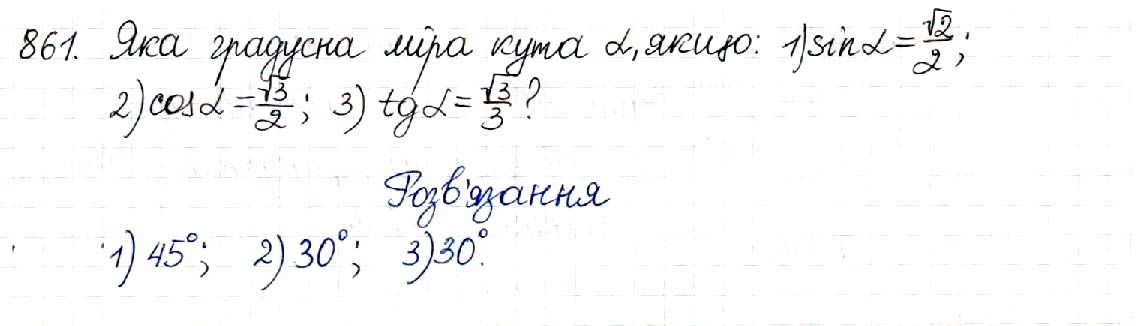 861. Яка градусна міра кута α, якщо: 1) sin α = √2/2;
2) cos α = √3/2; 3) tg α = √3/3?
Розв'язання
1) 45°; 2) 30°; 3) 30°.